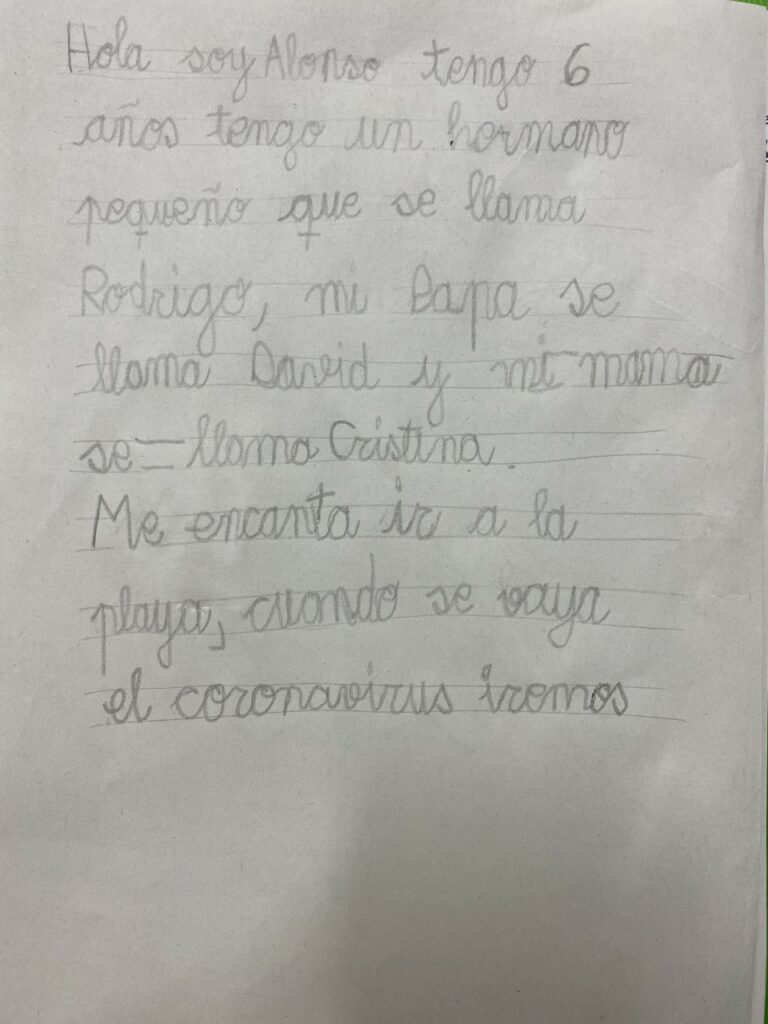 Hola soy Alonso tengo 6
años tengo un hermano
pequeño que se llama
Rodrigo, mi Papa se
llama David y mi mama
se llama Cristina.
Me encanta ir a la
playa, cuando se vaya
el coronavirus iremos